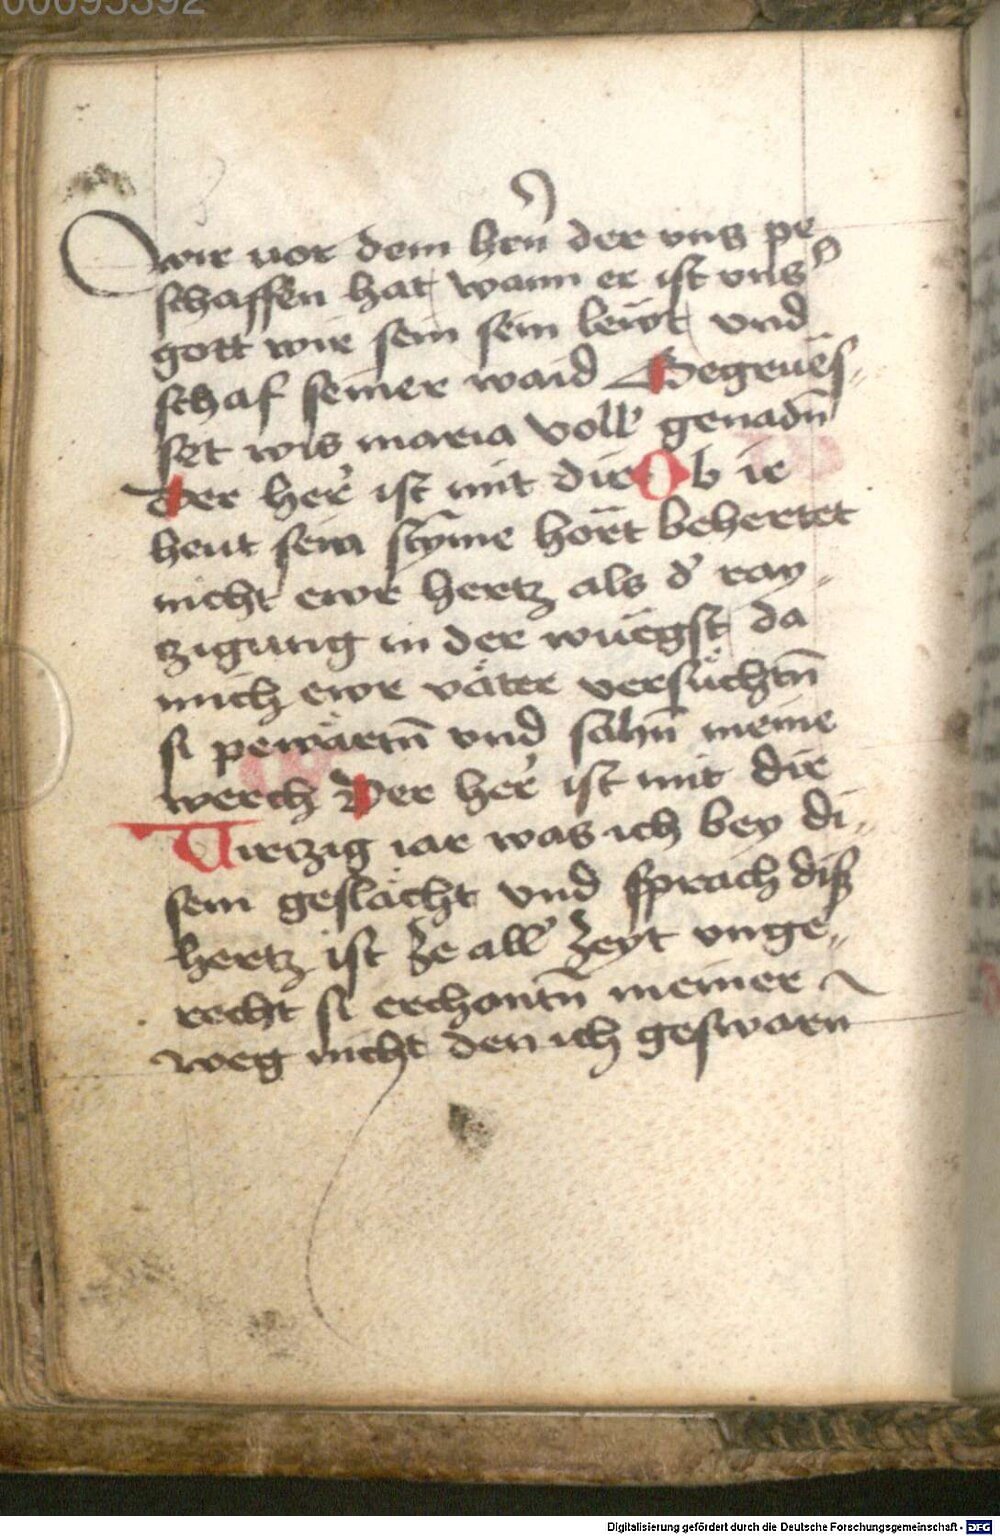 00095392
wir vor dem hern̄ der vns pe
schaffen hat wann er ist vnsʾ
gott wir sein sein lewt vnd
schaf seiner waid Begrues-
set wis maria voll genadn̄
Der herʾ ist mit dir Ob ir
heut sein stȳme hort behertet
nicht ewr hertz als dʾ ray-
zigung in der wuegst da
mich ewr väter versuͤchtn̄
si pewärtn̄ vnd sahn̄ meine
werch Der herʾ ist mit dir
Virtzig iar was ich bey di-
sem geslächt vnd sprach diß
hertz ist ze all zeyt vnge-
recht si erchontn̄ meiner
weg nicht den ich geswarn
Digitalisierung gefördert durch die Deutsche Forschungsgemeinschaft - DFG